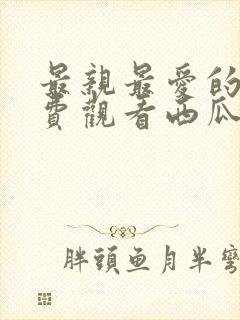 最親最愛的
費觀看西瓜
胖頭魚月半彎